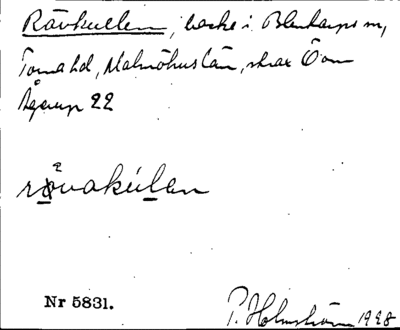 Rävkullen, backe i Blentarps sn,
Torna hd, Malmöhus län, strax Ö om
Ågerup 22
rävakúlan
Nr 5831.
P. Holmström 1928